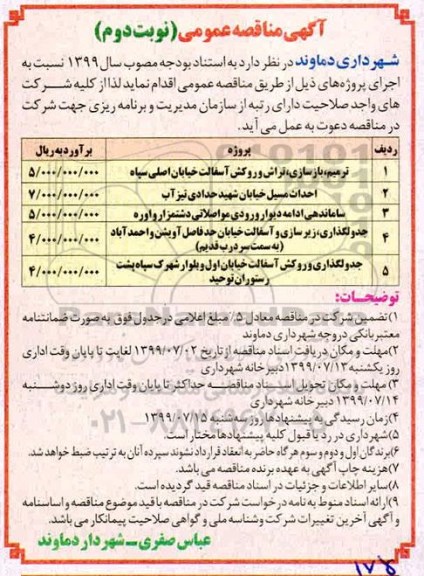 آگهی مناقصه عمومی (نوبت دوم)
شهرداری دماوند در نظر دارد به استناد بودجه مصوب سال ۱۳۹۹ نسبت به
اجرای پروژه‌های ذیل از طریق مناقصه عمومی اقدام نماید لذا از کلیه شرکت
های واجد صلاحیت دارای رتبه از سازمان مدیریت و برنامه ریزی جهت شرکت
در مناقصه دعوت به عمل می آید.
ردیف پروژه برآورد به ریال
۱ ترمیم، بازسازی، تراش و روکش آسفالت خیابان اصلی سپاه ۵/۰۰۰/۰۰۰/۰۰۰
۲ احداث مسیل خیابان شهید حدادی تیزآب ۷/۰۰۰/۰۰۰/۰۰۰
۳ ساماندهی ادامه دیوار ورودی مواصلاتی دشتمزار و اوره ۵/۰۰۰/۰۰۰/۰۰۰
۴ جدولگذاری، زیرسازی و آسفالت خیابان حدفاصل آویشن و احمدآباد ۴/۰۰۰/۰۰۰/۰۰۰
(به سمت سردرب قدیم)
۵ جدولگذاری و روکش آسفالت خیابان اول و بلوار شهرک سپاه پشت ۴/۰۰۰/۰۰۰/۰۰۰
رستوران توحید
توضیحات:
۱)تضمین شرکت در مناقصه معادل ۵٪ مبلغ اعلامی در جدول فوق به صورت ضمانتنامه
معتبر بانکی در وجه شهرداری دماوند
۲)مهلت و مکان دریافت اسناد مناقصه از تاریخ ۱۳۹۹/۰۷/۰۲ لغایت تا پایان وقت اداری
روز یکشنبه ۱۳۹۹/۰۷/۱۳ دبیرخانه شهرداری
۳) مهلت و مکان تحویل اسناد مناقصه حداکثر تا پایان وقت اداری روز دوشنبه
۱۳۹۹/۰۷/۱۴ دبیرخانه شهرداری
۴)زمان رسیدگی به پیشنهادها روز سه شنبه ۱۳۹۹/۰۷/۱۵
۵)شهرداری در رد یا قبول کلیه پیشنهادها مختار است.
۶)برندگان اول و دوم و سوم هر گاه حاضر به انعقاد قرارداد نشوند سپرده آنان به ترتیب ضبط خواهد شد.
۷)هزینه چاپ آگهی به عهده برنده مناقصه می باشد.
۸)سایر اطلاعات و جزئیات در اسناد مناقصه قید گردیده است.
۹)ارائه اسناد منوط به نامه درخواست شرکت در مناقصه با قید موضوع مناقصه و اساسنامه
و آگهی آخرین تغییرات شرکت و شناسه ملی و گواهی صلاحیت پیمانکار می باشد.
عباس صفری - شهردار دماوند